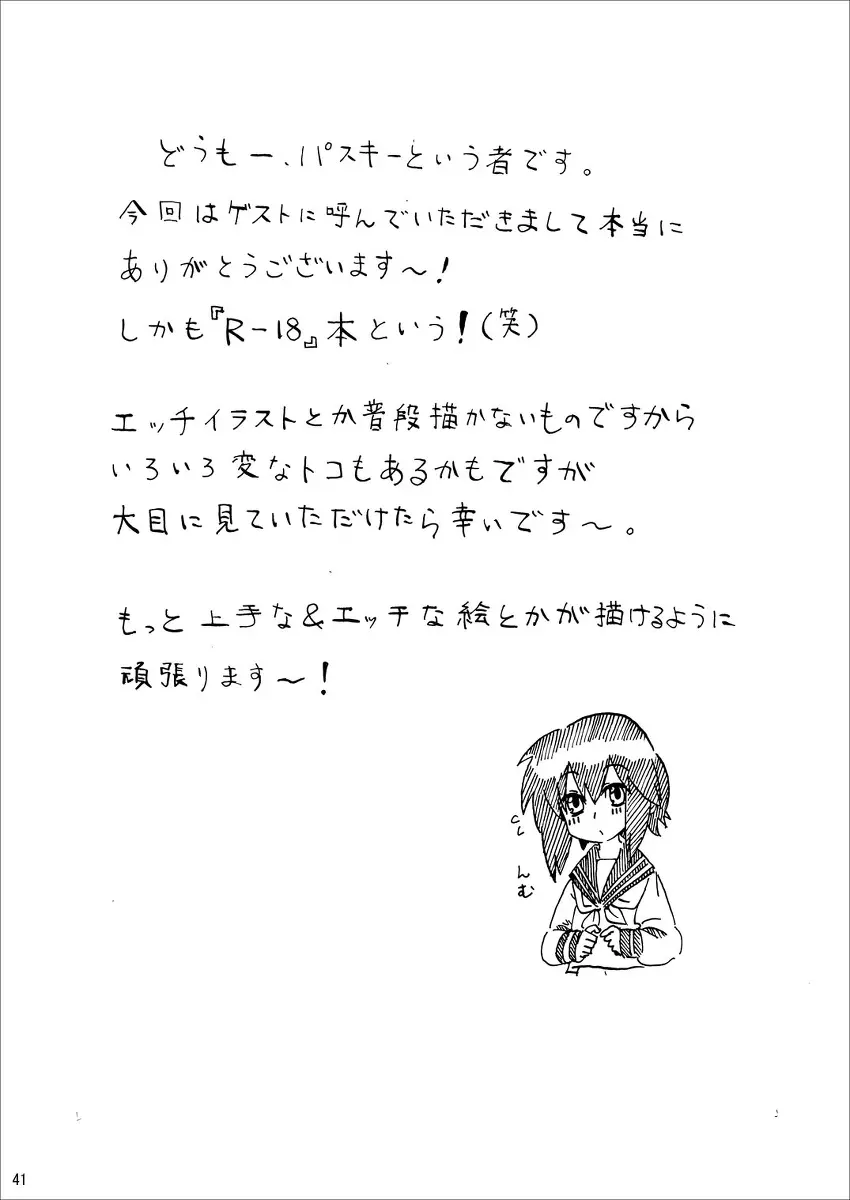 どうもー、パスキーという者です。
今回はゲストに呼んでいただきまして本当に
ありがとうございます～!
しかも『R-18』本という!(笑)
エッチイラストとか普段描かないものですから
いろいろ変なトコもあるかもですが
大目に見ていただけたら幸いです～。
もっと上手な&エッチな絵とかが描けるように
頑張ります～!
んむ
41